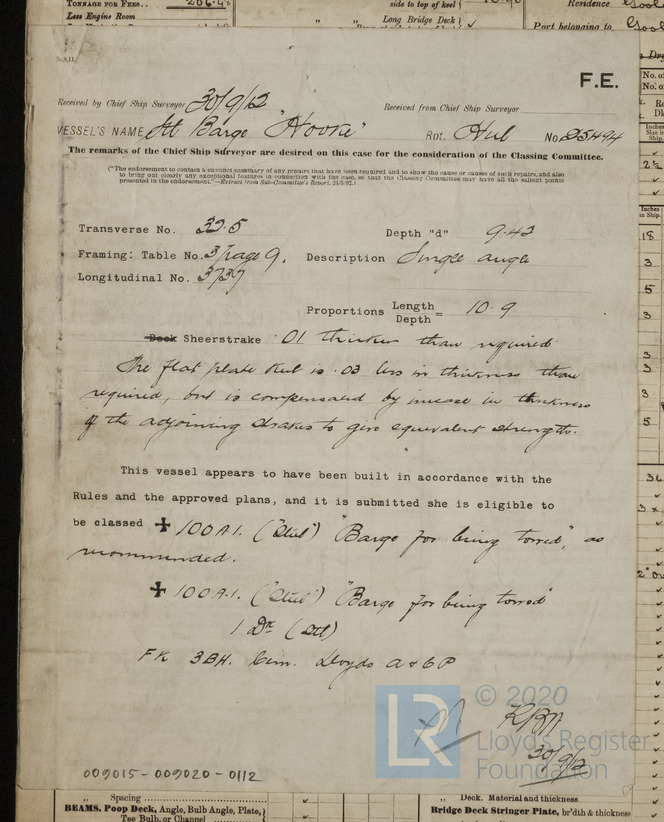 TONNAGE FOR FEES..
Less Engine Room
side to top of keel
Long Bridge Deck
Residence
Port belonging to
F.E.
Received by Chief Ship Surveyor 30/9/12
Received from Chief Ship Surveyor
VESSEL'S NAME Stl Barge "Hooke" Rpt. Hul No. 25494
The remarks of the Chief Ship Surveyor are desired on this case for the consideration of the Classing Committee.
("The endorsement to contain a succinct summary of any repairs that have been required and to show the cause or causes of such repairs, and also
to bring out clearly any exceptional features in connection with the case, so that the Classing Committee may have all the salient points
presented in the endorsement."—Extract from Sub-Committee's Report, 24/5/92.)
Transverse No. 22.5 Depth "d" 9.42
Framing: Table No. 3, page 9. Description Single angle
Longitudinal No. 3737
Proportions Length / Depth = 10.9
Deck Sheerstrake .01 thicker than required
The flat plate keel is .03 less in thickness than
required, but is compensated by increase in thickness
of the adjoining strakes to give equivalent strength.
This vessel appears to have been built in accordance with the
Rules and the approved plans, and it is submitted she is eligible to
be classed ✠ 100A.1. ("Steel") "Barge for being towed", as
recommended.
✠ 100A.1. ("Steel") "Barge for being towed"
1 Dk (Stl)
FK 3BH. Cem. Lloyds A & CP
30/9/12
© 2020
LR
Lloyd's Register
Foundation
009015-009020-0112
Spacing
BEAMS, Poop Deck, Angle, Bulb Angle, Plate,
Tee Bulb, or Channel
Deck. Material and thickness
Bridge Deck Stringer Plate, br'dth & thickness